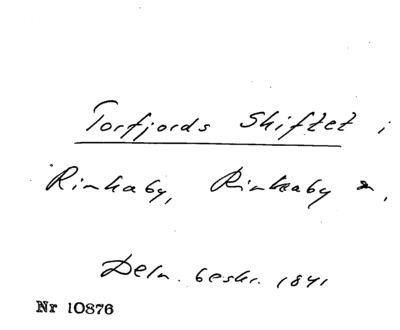 Torfjords Skiftet i
Rinkaby, Rinkaby
Deln. beskr. 1841
Nr 10876